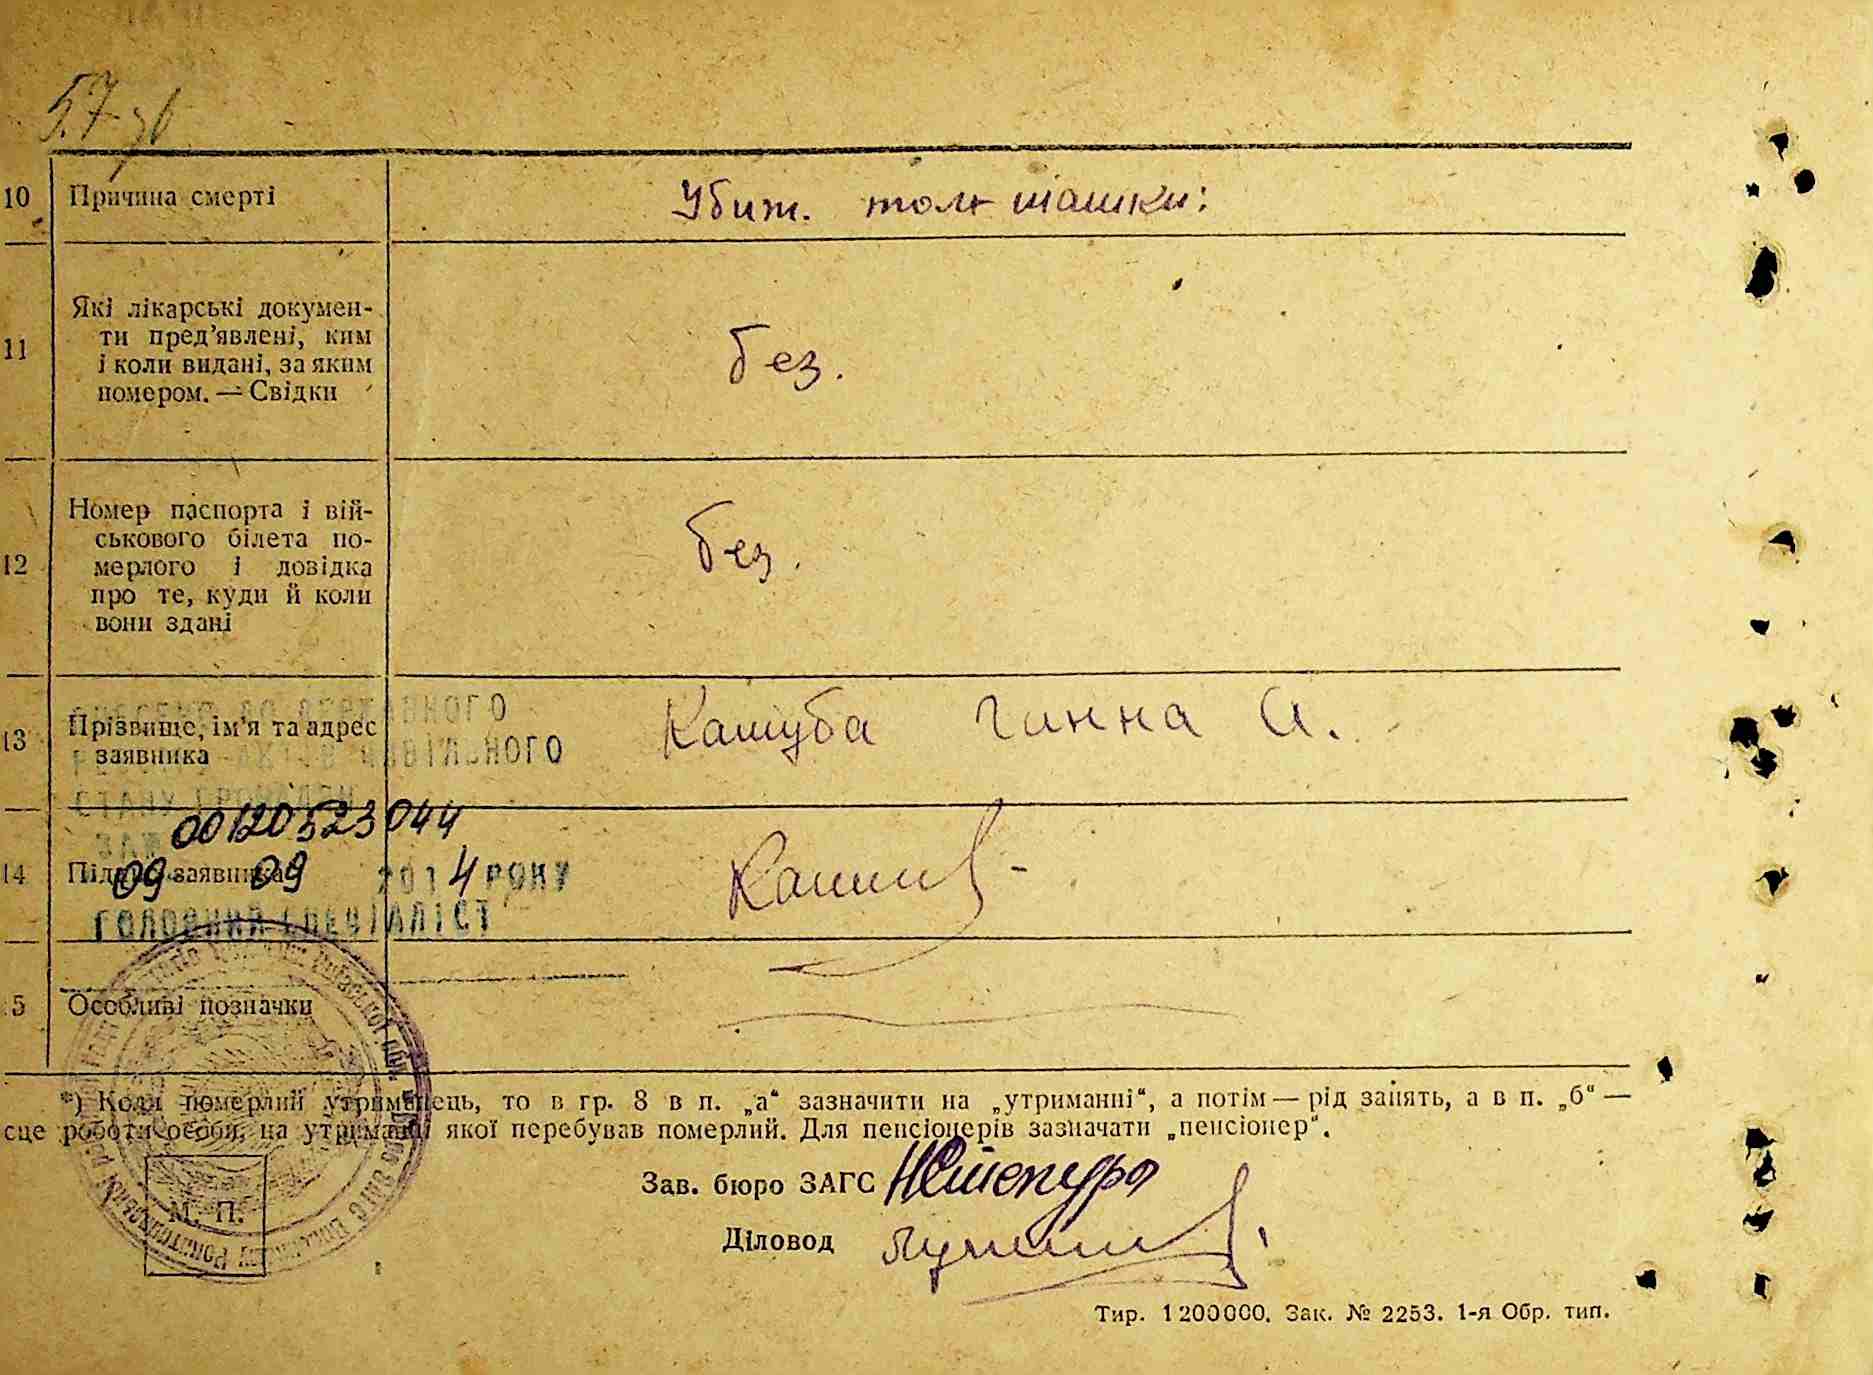 10 Причина смерті
Убит. толк шашки:
11 Які лікарські докумен-
ти пред'явлені, ким
і коли видані, за яким
номером. — Свідки
без.
12 Номер паспорта і вій-
ськового білета по-
мерлого і довідка
про те, куди й коли
вони здані
без.
13 Прізвище, ім'я та адрес
заявника
Кашуба Ганна А.
00120523044
14 Підпис заявника
09 09 2014 РОКУ
ГОЛОВНИЙ СПЕЦІАЛІСТ
5 Особливі позначки
*) Коли померлий утриманець, то в гр. 8 в п. „а“ зазначити на „утриманні“, а потім — рід занять, а в п. „б“ —
сце роботи особи, на утриманні якої перебував померлий. Для пенсіонерів зазначати „пенсіонер“.
М. П.
Зав. бюро ЗАГС
Діловод
Тир. 1200000. Зак. № 2253. 1-я Обр. тип.